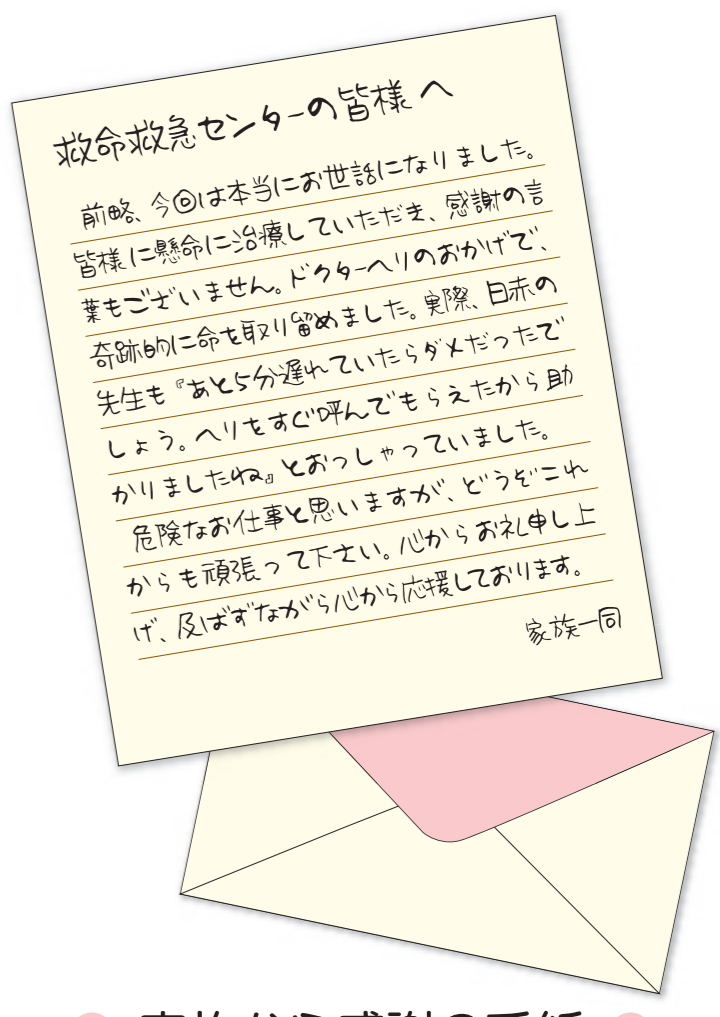 救命救急センターの皆様へ
前略、今回は本当にお世話になりました。
皆様に懸命に治療していただき、感謝の言
葉もございません。ドクターヘリのおかげで、
奇跡的に命を取り留めました。実際、日赤の
先生も『あと5分遅れていたらダメだったで
しょう。ヘリをすぐ呼んでもらえたから助
かりましたね』とおっしゃっていました。
危険なお仕事と思いますが、どうぞこれ
からも頑張って下さい。心からお礼申し上
げ、及ばずながら心から応援しております。
家族一同